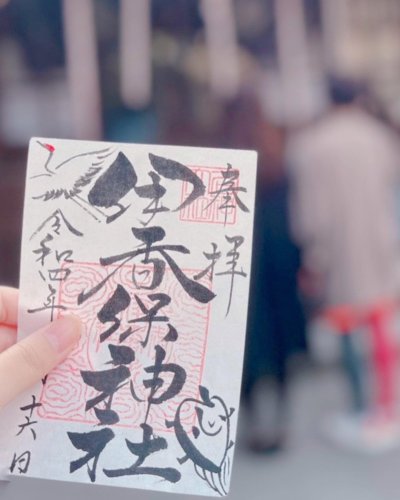 奉拝
伊香保神社
令和四年
十六日